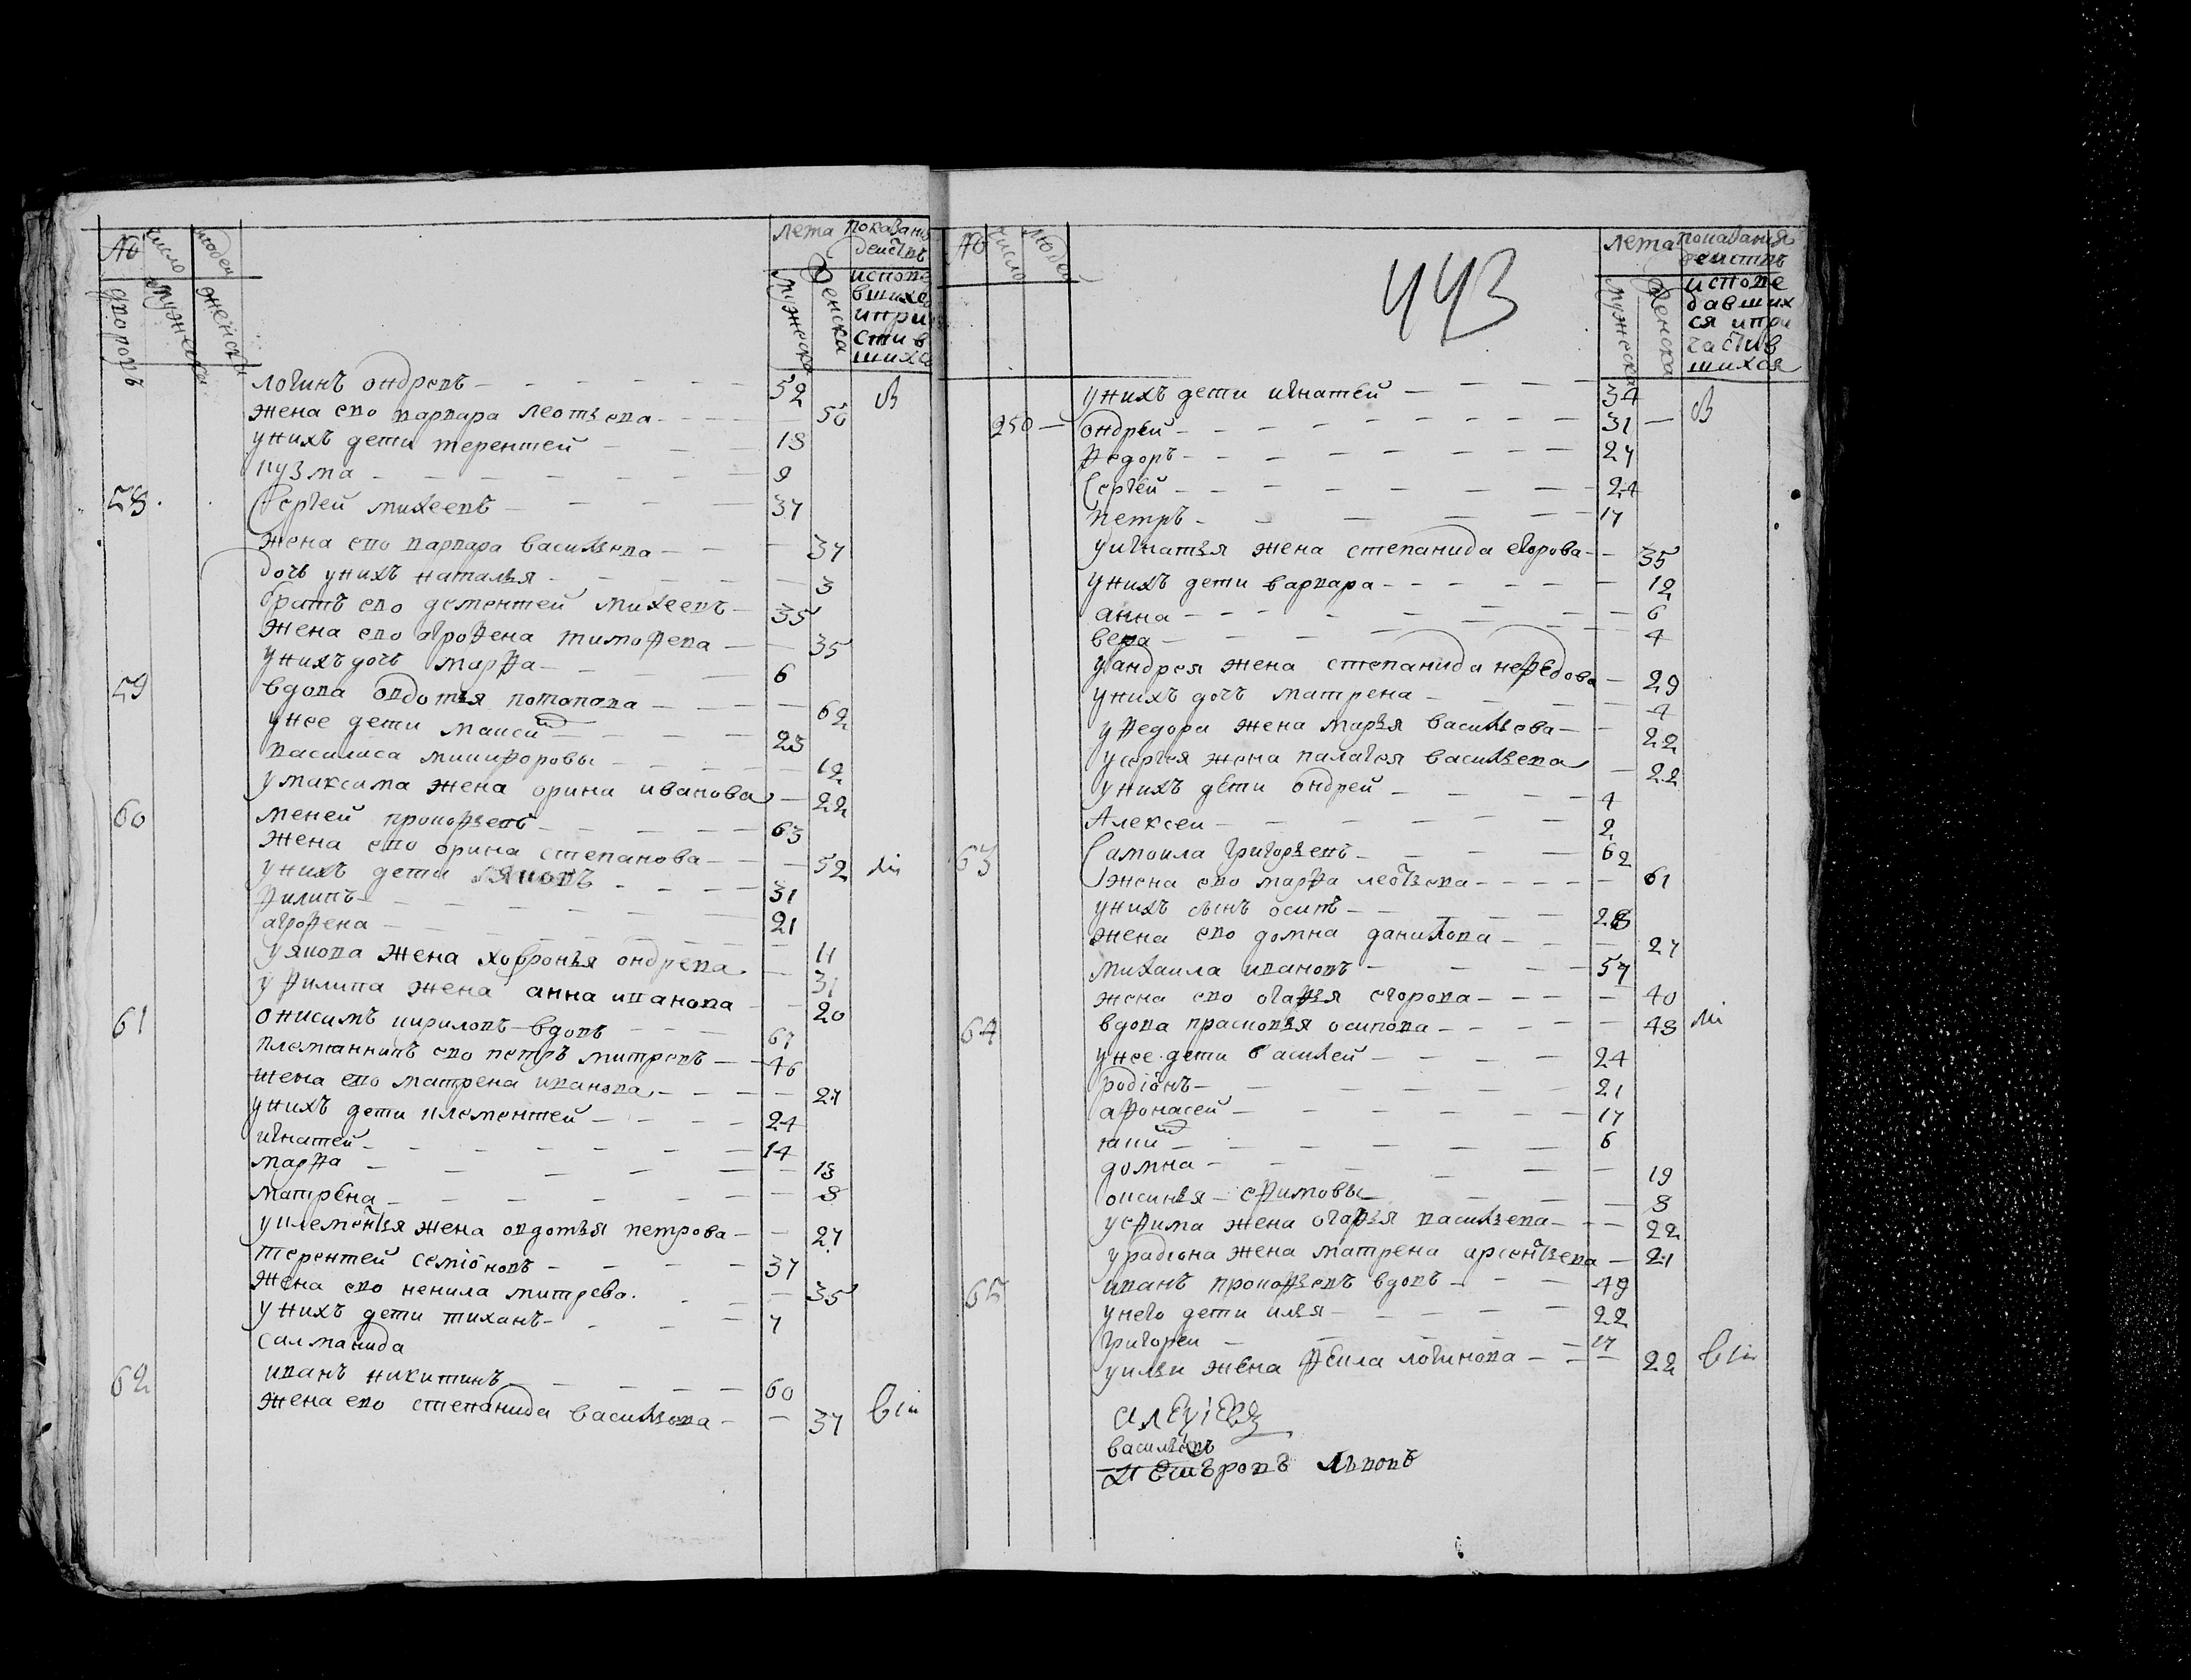 № число людей лета показания
дворовъ мужеска женски мужеска женска действъ
испове
вшихс
и при
стив
шихс
логинъ ондревъ 52 в
жена ево варвара леотьева 50
у нихъ дети терентей 18
кузма 9
58 Сергей михеевъ 37
жена ево варвара васильева 37
дочь у нихъ наталья 3
братъ ево дементей михеевъ 35
жена ево агрофена тимофева 35
у нихъ дочь марфа 6
59 вдова овдотья потопова 62
у нее дети 23
василиса никифоровы 12
у максима жена орина иванова 22
60 меней прокофьевъ 63
жена ево орина степанова 52
у нихъ дети яковъ
филипъ 31
агрофена 21
у якова жена ховронья ондрева 11
у филипа жена анна иванова 31
20
61 онисимъ кириловъ вдовъ 67
племянникъ ево петръ митревъ 46
жена ево матрена иванова 27
у нихъ дети клементей 24
игнатей 14
марфа 13
матрена 8
у клементья жена овдотья петрова 27
терентей семіоновъ 37
жена ево ненила митрева 35
у нихъ дети тиханъ 7
салманида
62 иванъ никитинъ 60
жена ево степанида васильева 37
№ число людей лета показания
действъ
мужеска женска испове
давших
ся и при
части в
шихся
443
у нихъ дети игнатей 34 в
250 ондрей 31
федоръ 27
Сергей 24
петръ 17
у игнатья жена степанида егорова 35
у нихъ дети варвара 12
анна 6
вера 4
у андрея жена степанида нефедова 29
у нихъ дочь матрена 4
у федора жена марья васильева 22
у сергея жена палагея васильева 22
у нихъ дети ондрей 4
Алексеи 2
63 Самоила григорьевъ 62
жена ево марфа леотьева 61
у нихъ сынъ осипъ 28
жена ево домна данилова 27
михаила ивановъ 57
жена ево огафья егорова 40
64 вдова прасковья осипова 48
у нее дети василей 24
родіонъ 21
афонасей 17
6
домна 19
оксинья ефимовы 8
у ефима жена огафья васильева 22
у радиона жена матрена арсентьева 21
65 иванъ прокофьевъ вдовъ 49
у него дети илья 22
григореи 17
у ильи жена фекла логинова 22
васильевъ